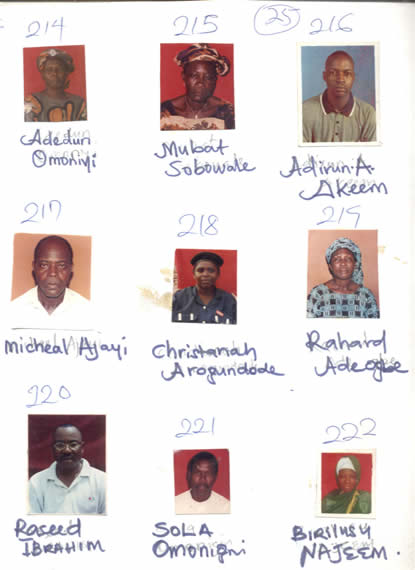 25
214 215 216
Adedun Omoniyi
Mubat Sobowale
Adivun. A. Akeem
217 218 219
Micheal Ajayi
Christanah Arogundode
Rahard Adeogbe
220 221 222
Raseed IBRAHIM
SOLA Omonigni
NAJEEM.